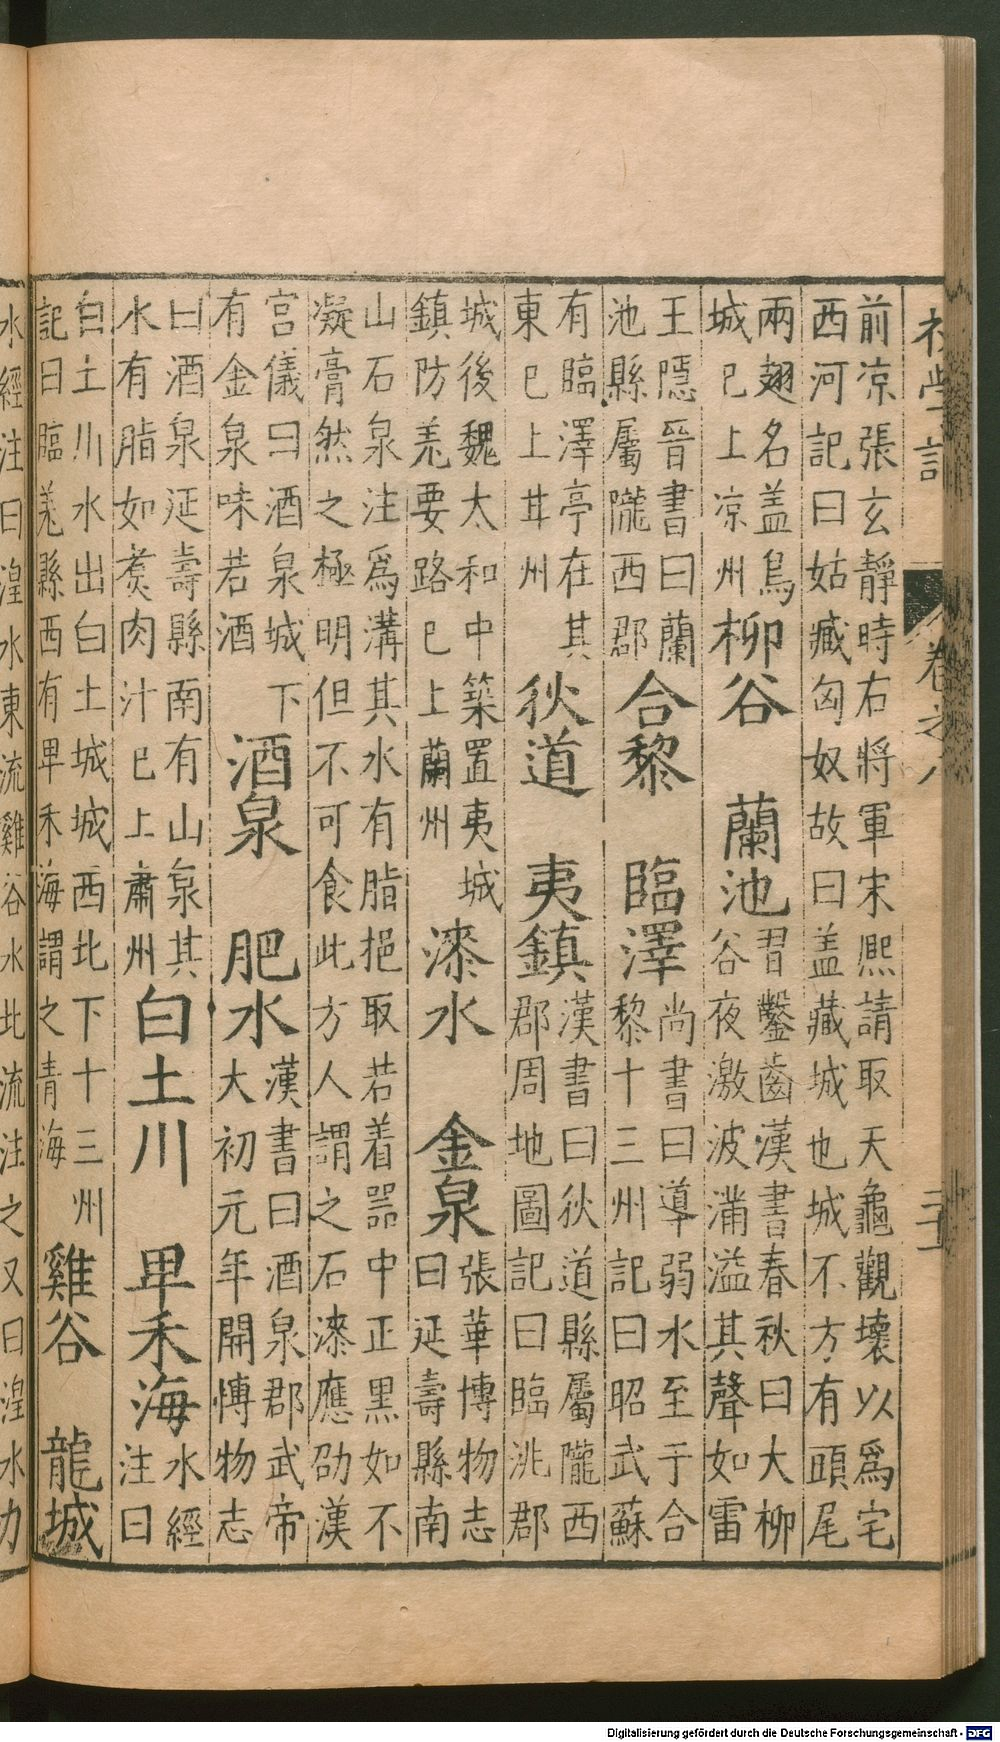 初學記
卷之八
前凉張玄靜時右將軍宋熈請取天龜觀壞以爲宅
西河記曰姑臧匈奴故曰盖藏城也城不方有頭尾
兩翅名盖鳥
城巳上凉州
柳谷
蘭池
習鑿齒漢書春秋曰大柳
谷夜激波滿溢其聲如雷
王隱晉書曰蘭
池縣屬隴西郡
合黎
臨澤
尚書曰導弱水至于合
黎十三州記曰昭武蘇
有臨澤亭在其
東巳上甘州
狄道
夷鎮
漢書曰狄道縣屬隴西
郡周地圖記曰臨洮郡
城後魏太和中築置夷城
鎮防羌要路巳上蘭州
漆水
金泉
張華博物志
曰延壽縣南
山石泉注爲溝其水有脂挹取若着器中正黑如不
凝膏然之極明但不可食此方人謂之石漆應劭漢
宫儀曰酒泉城下
有金泉味若酒
酒泉
肥水
漢書曰酒泉郡武帝
大初元年開博物志
曰酒泉延壽縣南有山泉其
水有脂如煑肉汁巳上肅州
白土川
卑禾海
水經
注曰
白土川水出白土城城西北下十三州
記曰臨羗縣西有卑禾海謂之青海
雞谷
龍城
水經注曰湟水東流雞谷水北流注之又曰湟水力
Digitalisierung gefördert durch die Deutsche Forschungsgemeinschaft - DFG